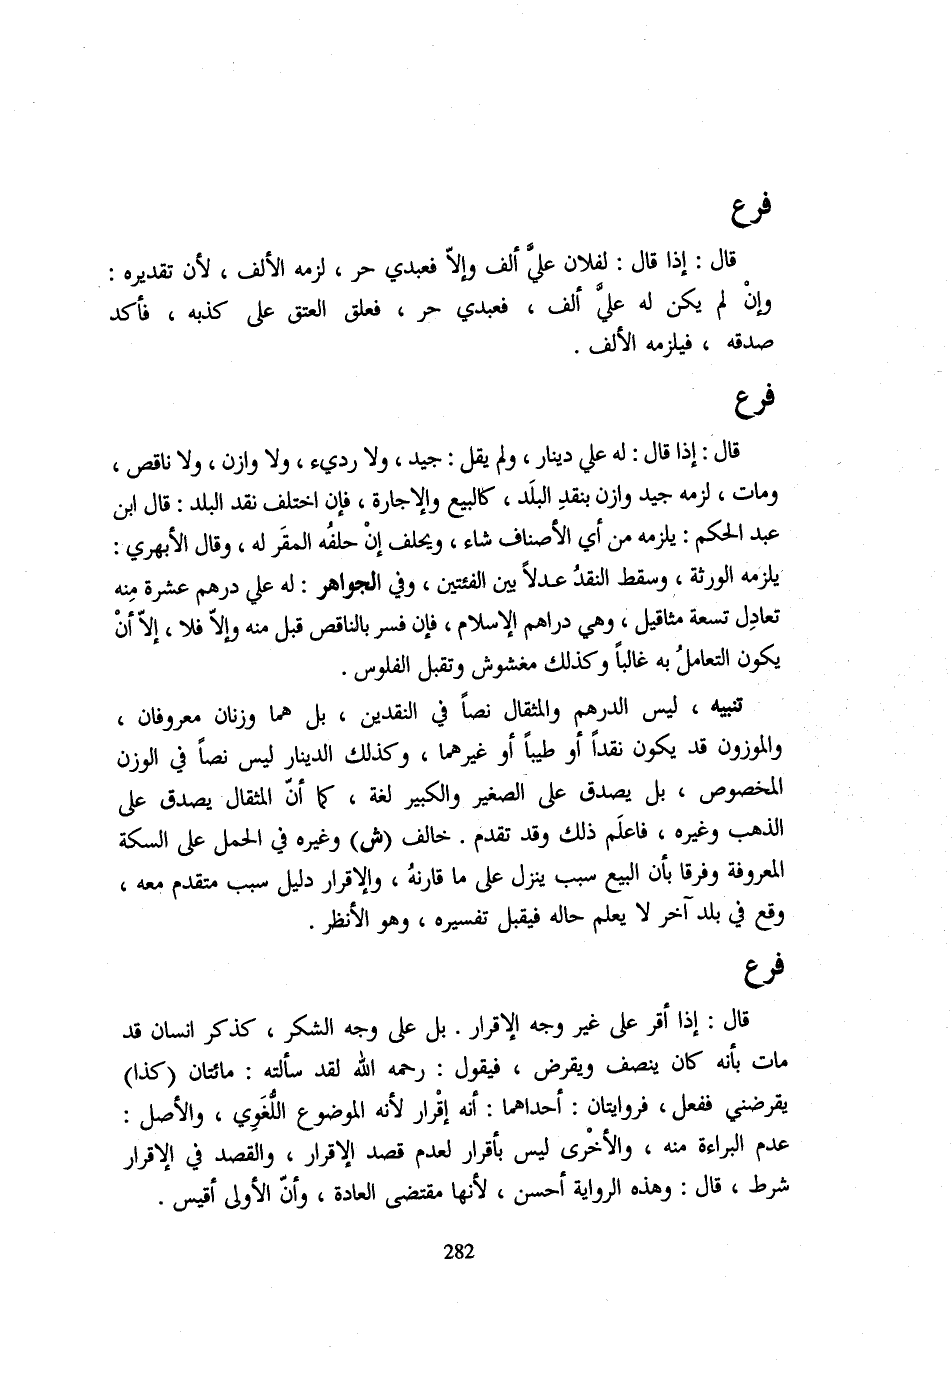 فرع
قال : إذا قال : لفلان عليَّ ألف وإلاّ فعبدي حر ، لزمه الألف ، لأن تقديره :
وإنْ لم يكن له عليَّ ألف ، فعبدي حر ، فعلق العتق على كذبه ، فأكد
صدقه ، فيلزمه الألف .
فرع
قال : إذا قال : له علي دينار ، ولم يقل : جيد ، ولا رديء ، ولا وازن ، ولا ناقص ،
ومات ، لزمه جيد وازن بنقدِ البلَد ، كالبيع والإجارة ، فإن اختلف نقد البلد : قال ابن
عبد الحكم : يلزمه من أي الأصناف شاء ، ويحلف إنْ حلفُه المقَر له ، وقال الأبهري :
يلزمه الورثة ، وسقط النقدُ عدلاً بين الفئتين ، وفي الجواهر : له علي درهم عشرة مِنه
تعادِل تسعة مثاقيل ، وهي دراهم الإسلام ، فإن فسر بالناقص قبل منه وإلاّ فلا ، إلاّ أنْ
يكون التعاملُ به غالباً وكذلك مغشوش وتقبل الفلوس .
تنبيه ، ليس الدرهم والمثقال نصاً في النقدين ، بل هما وزنان معروفان ،
والموزون قد يكون نقداً أو طيباً أو غيرهما ، وكذلك الدينار ليس نصاً في الوزن
المخصوص ، بل يصدق على الصغير والكبير لغة ، كما أنّ المثقال يصدق على
الذهب وغيره ، فاعلَم ذلك وقد تقدم . خالف (ش) وغيره في الحمل على السكة
المعروفة وفرقا بأن البيع سبب ينزل على ما قارنهُ ، والإقرار دليل سبب متقدم معه ،
وقع في بلد آخر لا يعلم حاله فيقبل تفسيره ، وهو الأنظر .
فرع
قال : إذا أقر على غير وجه الإقرار . بل على وجه الشكر ، كذكر انسان قد
مات بأنه كان ينصف ويقرض ، فيقول : رحمه الله لقد سألته : مائتان (كذا)
يقرضني ففعل ، فروايتان : أحداهما : أنه إقْرار لأنه الموضوع اللُّغَوِي ، والأصل :
عدم البراءة منه ، والأخْرى ليس بأقرار لعدم قصد الإقرار ، والقصد في الاقرار
شرط ، قال : وهذه الرواية أحسن ، لأنها مقتضى العادة ، وأنّ الأولى أقيس .
282